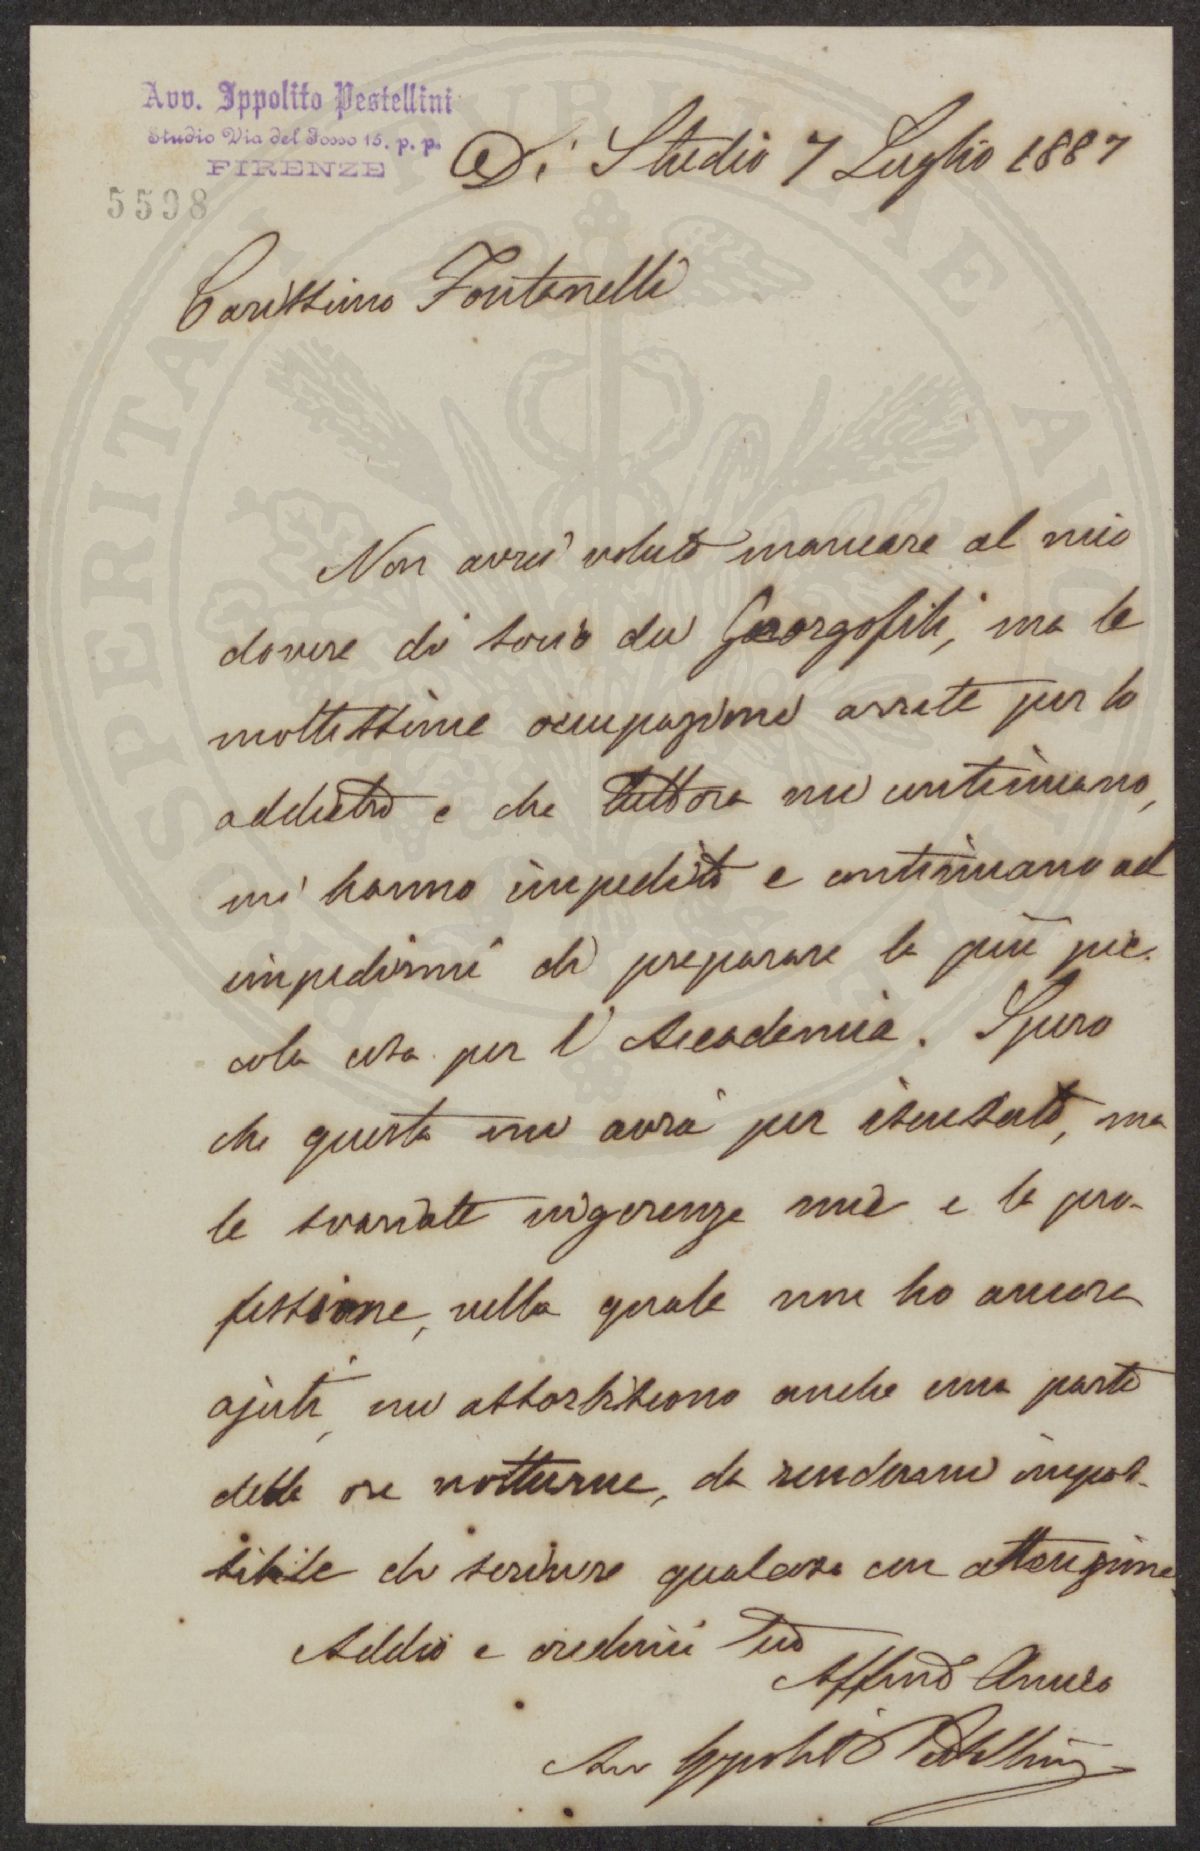 Avv. Ippolito Pestellini
Studio Via del Fosso 15. p. p.
FIRENZE
5598
Di Studio 7 Luglio 1887
Carissimo Fontanelli
Non avrei voluto mancare al mio
dovere di socio dei Georgofili, ma le
moltissime occupazioni avute per lo
addietro e che tuttora mi continuano,
mi hanno impedito e continuano ad
impedirmi di preparare la più pic-
cola cosa per l'Accademia. Spero
che questa mi avrà per iscusato, ma
le svariate ingerenze mie e la pro-
fessione, nella quale non ho ancora
ajuti, mi assorbiscono anche una parte
delle ore notturne, da rendermi impos-
sibile di scrivere qualcosa con attenzione.
Addio e credimi tuo
Affmo Amico
Avv Ippolito Pestellini
PROSPERITATI PUBLICAE AUGENDAE